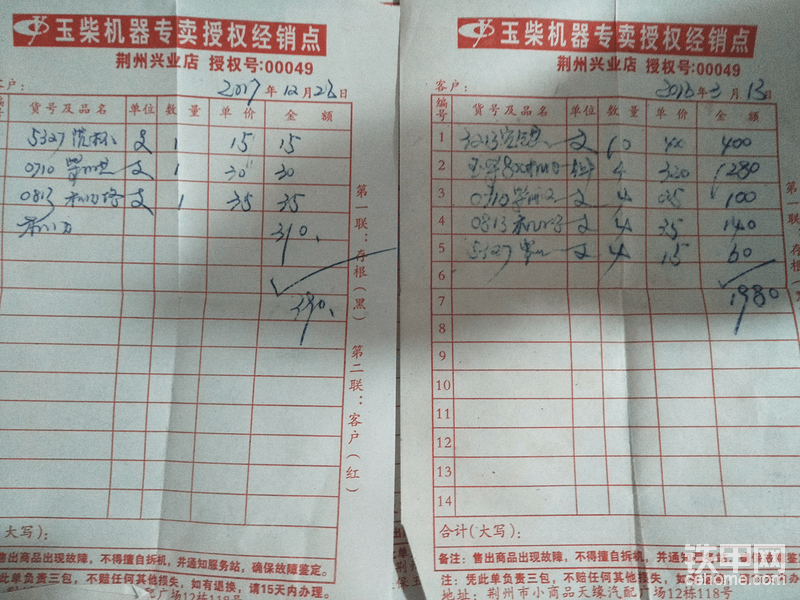 玉柴机器专卖授权经销点
荆州兴业店 授权号:00049
户:
2017年12月23日
号 货号及品名 单位 数量 单价 金额
5327 支 1 15 15
0710 支 1 30 30
0813 机油格 支 1 35 35
机油 310.
390.
第一联:存根(黑) 第二联:客户(红)
大写):
售出商品出现故障,不得擅自拆机,并通知服务站,确保故障鉴定。
此单负责三包,不赔任何其他报失,如有退换,请15天内办理。
广场12栋118号
玉柴机器专卖授权经销点
荆州兴业店 授权号:00049
客户:
年 月13日
编号 货号及品名 单位 数量 单价 金额
1 3213 支 10 40 400
2 4 320 1280
3 0710 支 4 100
4 0813 机油格 支 4 35 140
5 5327 支 4 15 60
6
7 1980
8
9
10
11
12
13
14
合计(大写):
备注:售出商品出现故障,不得擅自拆机,并通知
注:凭此单负责三包,不赔任何其他报失,如有退换,
地址:荆州市小商品天缘汽配广场12栋118号
铁甲网